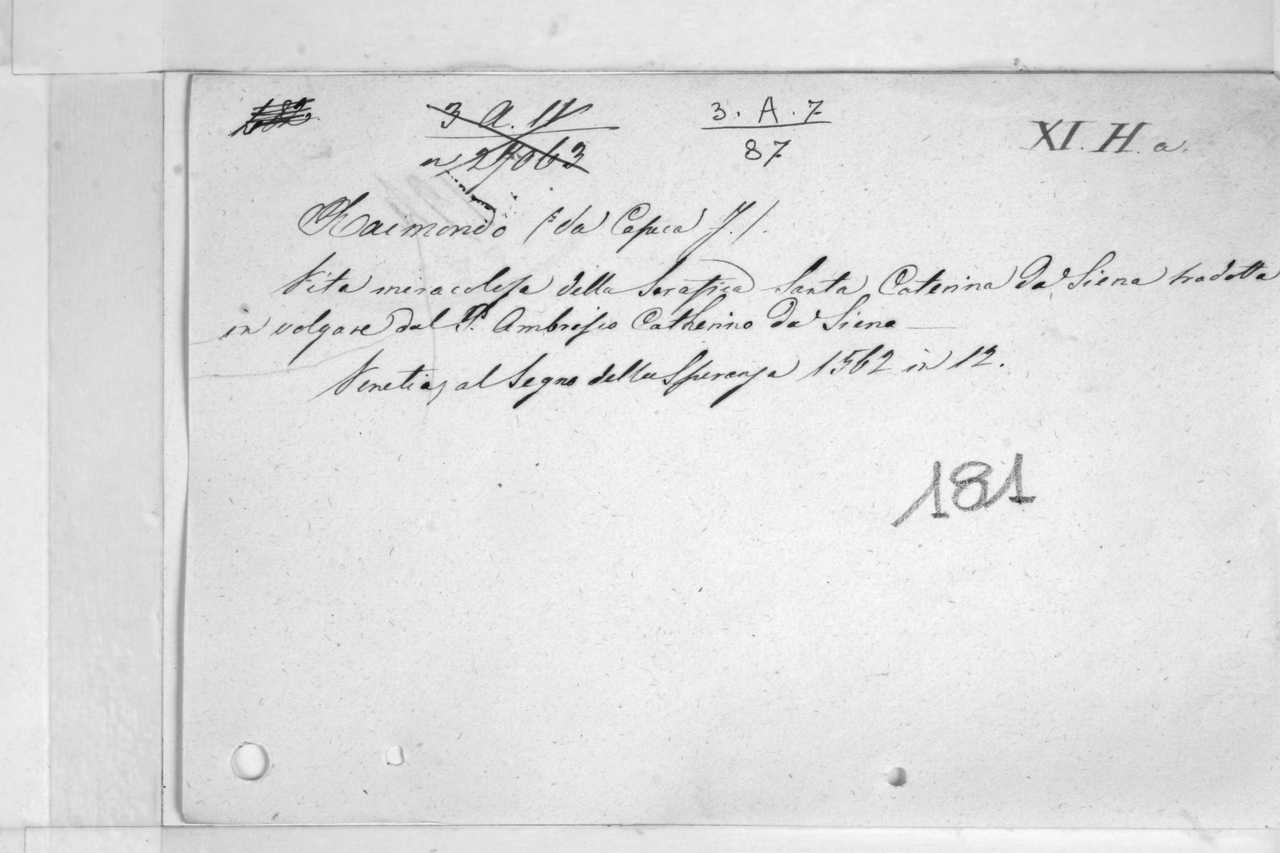 3 A. IV 3. A. 7 XI. H. a.
n 27063 87
Raimondo (da Capua F.).
Vita miracolosa della serafica Santa Caterina da Siena tradotta
in volgare dal P. Ambrosio Catherino da Siena —
Venetia, al Segno della Speranza 1562 in 12.
181